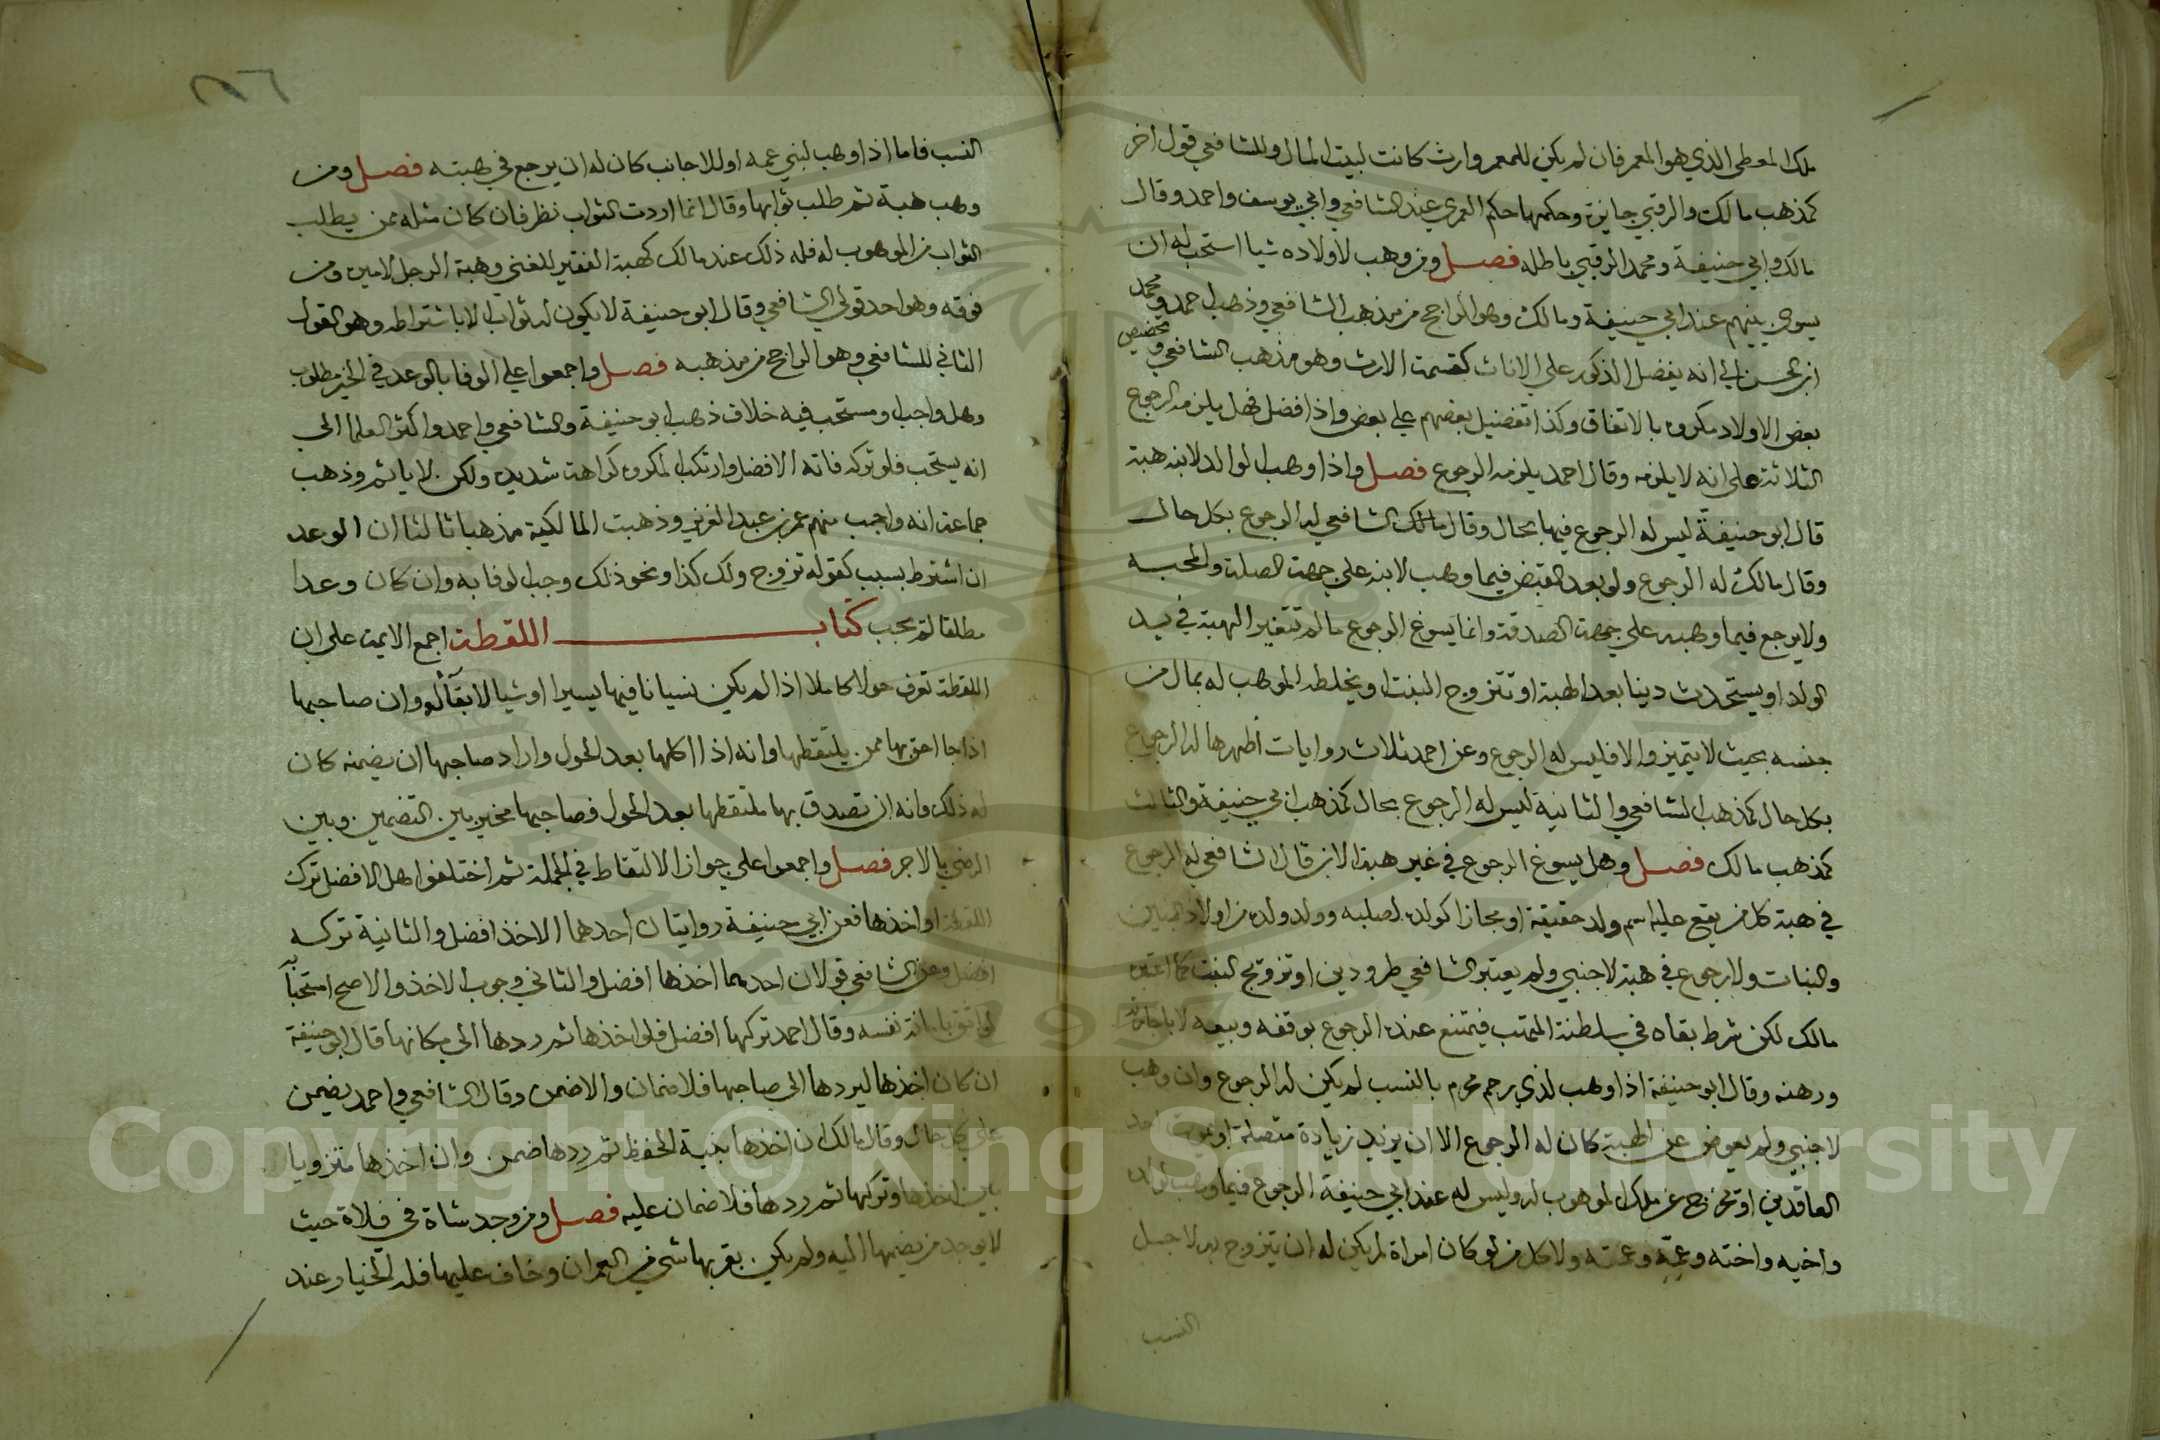 ملك المعطي الذي هو المعمر فان لم يكن للمعمر وارث كانت لبيت المال وللشافعي قول اخر
كمذهب مالك والرقبي جايزة وحكمها حكم العمري عند الشافعي وابي يوسف واحمد وقال
مالك وابي حنيفة ومحمد الرقبي باطله فصل ومن وهب لاولاده شيا استحب له ان
يسوي بينهم عند ابي حنيفة ومالك وهو الراجح من مذهب الشافعي وذهب احمد ومحمد
ابن الحسن الي انه يفضل الذكور علي الاناث كقسمة الارث وهو مذهب الشافعي وتخصيص
بعض الاولاد مكروه بالاتفاق وكذا تفضيل بعضهم علي بعض واذا فضل فهل يلزمه الرجوع
الثلاثة علي انه لا يلزمه وقال احمد يلزمه الرجوع فصل واذا وهب الوالد لابنه هبة
قال ابو حنيفة ليس له الرجوع فيها بحال وقال مالك الشافعي له الرجوع بكل حال
وقال مالك له الرجوع ولو بعد القبض فيما وهب لابنه علي جهة الصلة والمحبه
ولا يرجع فيما وهبه علي جهة الصدقة وانما يسوغ الرجوع ما لم تتغير الهبة في يد
الولد او يستحدث دينا بعد الهبة او تتزوج البنت او يخلطه الموهب له بمال من
جنسه بحيث لا يتميز والا فليس له الرجوع وعن احمد ثلاث روايات اظهرها له الرجوع
بكل حال كمذهب الشافعي والثانية ليس له الرجوع بحال كمذهب ابي حنيفة والثالث
كمذهب مالك فصل وهل يسوغ الرجوع في غير هبة الابن قال الشافعي له الرجوع
في هبة كل من يقع عليه اسم ولد حقيقة او مجازا كولده لصلبه وولد ولده من اولاد البنين
والبنات ولا رجوع في هبة الاجنبي ولم يعتبر الشافعي طرو دين او تزويج البنت كما اعتبره
مالك لكن شرط بقاه في سلطنة المتهب فيمتنع عنده الرجوع بوقفه وبيعه لا باجارته
ورهنه وقال ابو حنيفة اذا وهب لذي رحم محرم بالنسب لم يكن له الرجوع وان وهب
لاجنبي ولم يعوض عن الهبة كان له الرجوع الا ان يزيد زيادة متصلة او يموت احد
العاقدين او تخرج عن ملك الموهوب له وليس له عند ابي حنيفة الرجوع فيما وهب لولده
واخيه واخته وعمه وعمته ولا كل من لو كان امراة لم يكن له ان يتزوج به لاجل
النسب
النسب فاما اذا وهب لبني عمه او للاجانب كان له ان يرجع في هبته فصل ومن
وهب هبة ثم طلب ثوابها وقال انما اردت الثواب نظر فان كان مثله ممن يطلب
الثواب من الموهوب له فله ذلك عند مالك كهبة الفقير للغني وهبة الرجل لامير ومن
فوقه وهو احد قولي الشافعي وقال ابو حنيفة لا يكون له ثواب الا باشتراطه وهو القول
الثاني للشافعي وهو الراجح من مذهبه فصل واجمعوا علي الوفا بالوعد في الخير مطلوب
وهل واجب او مستحب فيه خلاف ذهب ابو حنيفة والشافعي واحمد واكثر العلما الي
انه يستحب فلو تركه فاته الافضل وارتكب المكروه كراهة شديدة ولكن لا ياثم وذهب
جماعة انه واجب منهم عمر بن عبد العزيز وذهبت المالكية مذهبا ثالثا ان الوعد
ان اشترط بسبب كقوله تزوج ولك كذا ونحو ذلك وجب الوفا به وان كان وعدا
مطلقا لم يجب كتاب اللقطة اجمع الايمة علي ان
اللقطة تعرف حولا كاملا اذا لم يكن نسيانا فيها يسيرا او شيا لا بقا له وان صاحبها
اذا جا احق بها ممن يلتقطها وانه اذا اكلها بعد الحول واراد صاحبها ان يضمنه كان
له ذلك وانه ان تصدق بها ملتقطها بعد الحول فصاحبها مخير بين التضمين وبين
الرضي بالاجر فصل واجمعوا علي جواز الالتقاط في الجملة ثم اختلفوا هل الافضل ترك
اللقطة او اخذها فعن ابي حنيفة روايتان احدهما الاخذ افضل والثانية تركه
افضل وعن الشافعي قولان احدهما اخذها افضل والثاني وجوب الاخذ والاصح استحبابا
لواثق بامانة نفسه وقال احمد تركها افضل فلو اخذها ثم ردها الي مكانها قال ابو حنيفة
ان كان اخذها ليردها الي صاحبها فلا ضمان والا ضمن وقال الشافعي واحمد يضمن
علي كل حال وقال مالك ان اخذها بنية الحفظ ثم ردها ضمن وان اخذها متزويا
بين اخذها وتركها ثم ردها فلا ضمان عليه فصل ومن وجد شاة في فلاة حيث
لا يوجد من يضمها اليه ولم يكن بقربها شي من العمران وخاف عليها فله الخيار عند